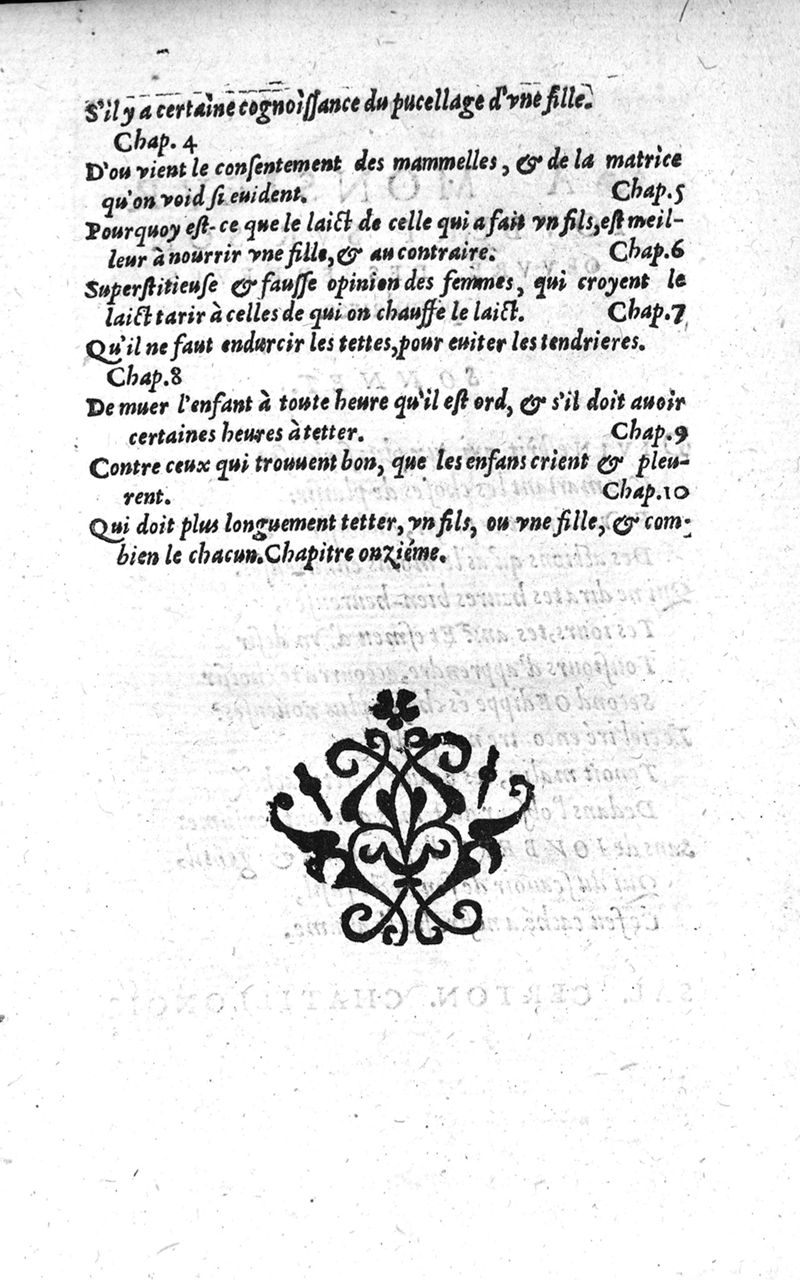 S'il y a certaine cognoiſſance du pucellage d'vne fille.
Chap. 4
D'ou vient le conſentement des mammelles, & de la matrice
qu'on void ſi euident. Chap.5
Pourquoy eſt-ce que le laict de celle qui a fait vn fils, eſt meil-
leur à nourrir vne fille, & au contraire. Chap.6
Superſtitieuſe & fauſſe opinion des femmes, qui croyent le
laict tarir à celles de qui on chauffe le laict. Chap.7
Qu'il ne faut endurcir les tettes, pour euiter les tendrieres.
Chap.8
De muer l'enfant à toute heure qu'il eſt ord, & s'il doit auoir
certaines heures à tetter. Chap.9
Contre ceux qui trouuent bon, que les enfans crient & pleu-
rent. Chap.10
Qui doit plus longuement tetter, vn fils, ou vne fille, & com-
bien le chacun. Chapitre onziéme.